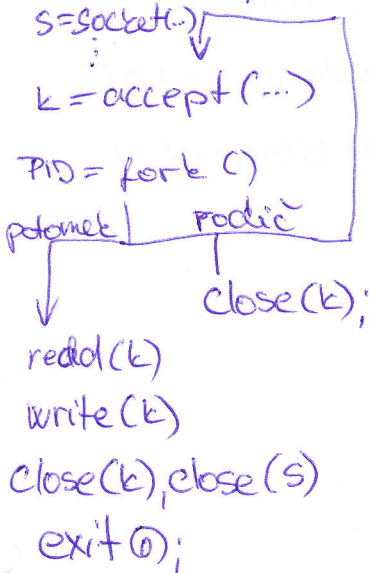 s=socket(..)
⋮
k = accept (...)
PID = fork ()
potomek rodič
close(k);
read(k)
write(k)
close(k), close(s)
exit();